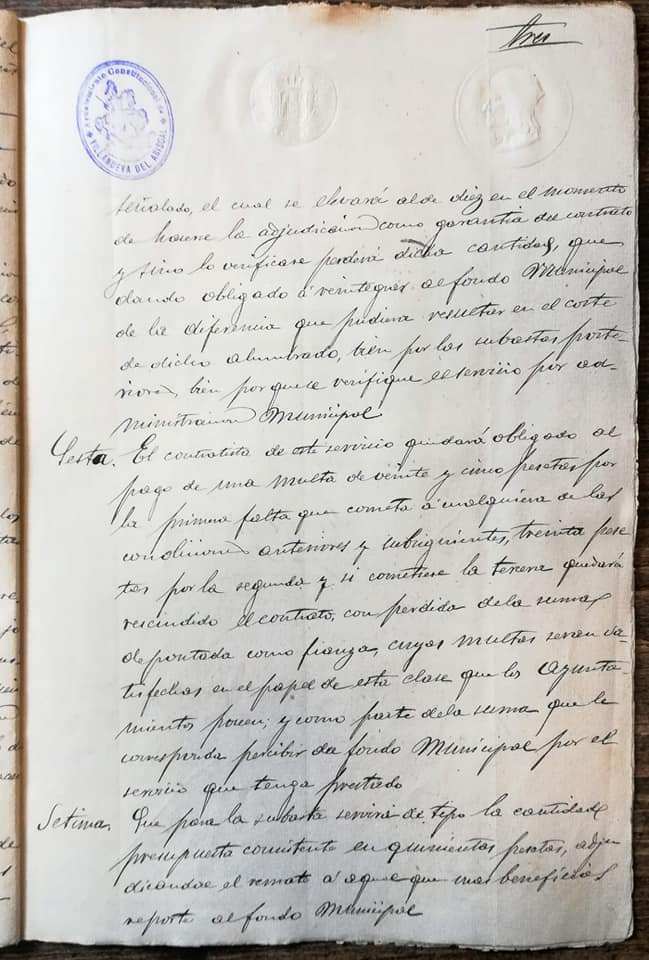 tres
Ayuntamiento Constitucional de
VILLANUEVA DEL ARISCAL
señalado, el cual se elevará al de diez en el momento
de hacerse la adjudicacion como garantia del contrato
y sino lo verificase perderá dicha cantidad, que
dando obligado á reintegrar al fondo Municipal
de la diferencia que pudiera resultar en el coste
de dicho alumbrado, bien por las subastas poste-
riores, bien por que se verifique el servicio por ad-
ministracion Municipal
Sesta. El contratista de este servicio quedará obligado al
pago de una multa de veinte y cinco pesetas por
la primera falta que cometa á cualquiera de las
condiciones anteriores y subsiguientes, treinta pese
tas por la segunda y si cometiese la tercera quedará
rescindido el contrato, con perdida de la suma
depositada como fianza, cuyas multas seran sa-
tisfechas en el papel de esta clase que los Ayunta-
mientos poseen; y como parte de la suma que le
corresponda percibir del fondo Municipal por el
servicio que tenga prestado
Setima. Que para la subasta servirá de tipo la cantidad
presupuesta consistente en quinientas pesetas, adju
dicandose el remate á aquel que mas beneficios
reporte al fondo Municipal